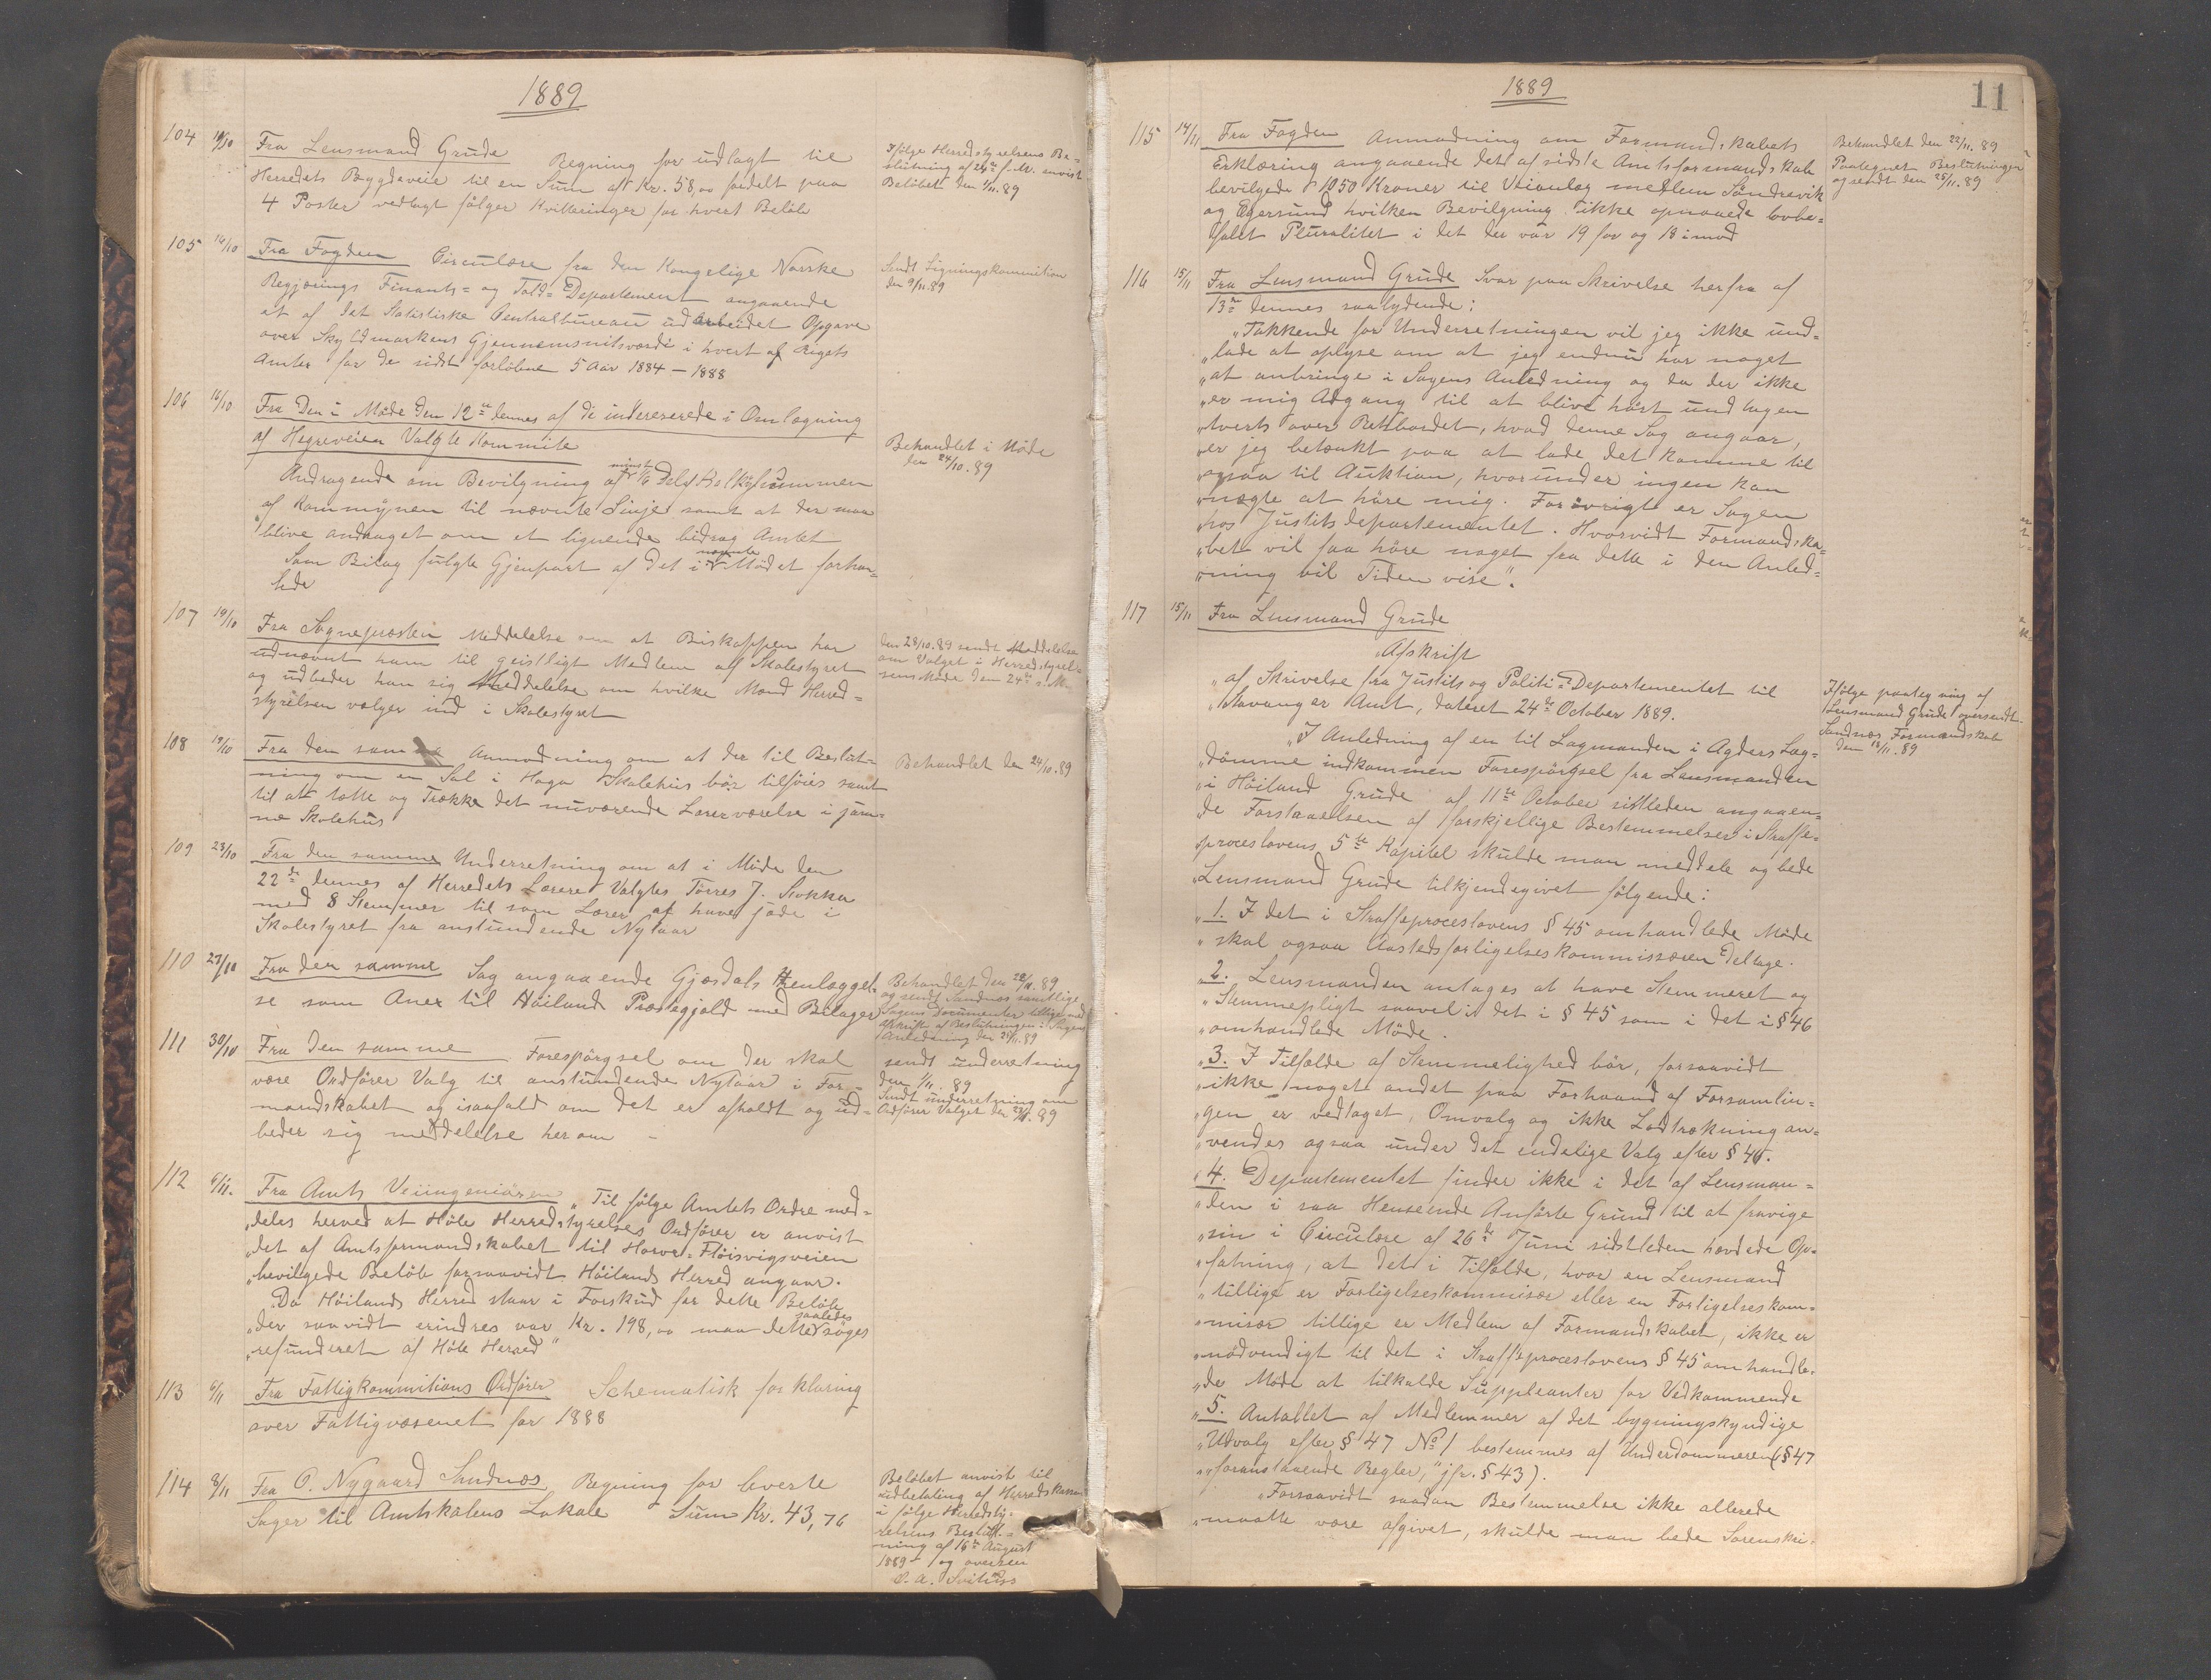 1889
104 19/10 Fra Lensmand Grude Regning for udlagt til
Herredets Bygdeveie til en Sum aft Kr. 58,00 fordelt paa
4 Poster vedlagt følger Kvitteringer for hvert Beløb
Ifølge Herredstyrelsens Be-
slutning af 24de f. M. anvist
Beløbet den 1/11.89
105 14/10 Fra Fogden Circulære fra den Kongelige Norske
Regjerings Finants- og Told-Departement angaaende
et af det Statistiske Centralbureau udarbeidet Opgave
over Skyldmarkens Gjennemsnitsværdi i hvert af Rigets
Amter for de sidst forløbne 5 Aar 1884 – 1888
Sendt Ligningskommition
den 9/11.89
106 16/10 Fra Den i Møde den 12te dennes af de intereserede i Omlægning
af Hegreveien Valgte Kommite
Andragende om Bevilgning af mindst 1/6 Del af
af Kommynen til nævnte Linje samt at der maa
blive andraget om et lignende bidrag Amtet
Som Bilag fulgte Gjenpart af det i nævnte Mødet forhan-
lede
Behandlet i Møde
den 24/10.89
107 19/10 Fra Sognepresten Middelelse om at Biskoppen har
udnævnt ham til geistligt Medlem af Skolestyret
og udbeder han sig Meddelelse om hvilke Mænd Herred-
styrelsen vælger ind i Skolestyret
Den 28/10.89 sendt Meddelelse
om Valget i Herredstyrel-
sens Møde den 24de s. M.
108 19/10 Fra den samme Anmodning om at der til Beslut-
ning om en Sal i Hoga Skolehus bør tilføies samt
til at tætte og Trække det nuværende Lærerværelse i jam-
ne Skolehus
Behandlet den 24/10.89
109 23/10 Fra den samme Underretning om at i Møde den
22de dennes af Herredets Lærere Valgtes Tørres J. Stokka
med 8 Stemmer til som Lærer at have sæde i
Skolestyret fra anstundende Nytaar
110 27/10 Fra den samme Sag angaaende Gjesdals Henlæggel-
se som Anex til Høiland Præstegjeld med Bilager
Behandlet den 22/11.89
og sendt Sandnæs samtlige
Sagens Documenter tillige med
Afskrift af Beslutningen i Sagens
Anledning den 25/11.89
111 30/10 Fra den samme Forespørgsel om der skal
være Ordfører Valg til anstundende Nytaar i For-
mandskabet og isaafald om det er afholdt og ud-
beder sig meddelelse herom –
sendt underretning
den 1/11.89
Sendt underretning om
Ordfører Valget den 23/11.89
112 6/11. Fra Amts Veiingeniøren „Til følge Amtets Ordre med-
„deles herved at Høle Herredstyrelses Ordfører er anvist
„det af Amtsformandskabet til Horve-Fløisvigsveien
„bevilgede Beløb forsaavidt Høilands Herred angaar.
„Da Høilands Herred staar i Forskud for dette Beløb
„der saavidt erindres var Kr. 198,00 maa dette saaledes søges
„refunderet af Høle Herred"
113 6/11 Fra Fattigkommitions Ordfører Schematisk forklaring
over Fattigvæsenet for 1888
114 8/11 Fra O. Nygaard Sandnæs. Regning for leverte
Sager til Amtskolens Lokale Sum Kr. 43,76
Beløbet anvist til
udbetaling af Herredskassen
i følge Herredsty-
relsens Beslut-
ning af 16de August
1889 – og oversen
O. A.
1889
11
115 14/11 Fra Fogden Anmodning om Formandskabets
Erklæring angaaende det af sidste Amtsformandskab
bevilgede 1050 Kroner til Veianlæg mellem Søndrevik
og Egersund hvilken Bevilgning ikke opnaaede lovbe-
falet Pluralitet i det der var 19 for og 18 imod
Behandlet den 22/11.89
Paategnet Beslutningen
og sendt den 25/11.89
116 15/11 Fra Lensmand Grude Svar paa Skrivelse herfra af
13de dennes saalydende:
„Takkende for Underretningen vil jeg ikke und-
„lade at oplyse om at jeg endnu har noget
„at anbringe i Sagens Anledning og da der ikke
„er mig Adgang til at blive hørt undtagen
„tverts over Retsbordet, hvad denne Sag angaar,
„er jeg betænkt paa at lade det komme til
„ogsaa til Auktion, hvorunder ingen kan
„nægte at høre mig. Forøvrigt er Sagen
„hos Justitsdepartementet. Hvorvidt Formandska-
„bet vil faa høre noget fra dette i den Anled-
„ning vil Tiden vise".
117 15/11 Fra Lensmand Grude
„Afskrift
„af Skrivelse fra Justits og Politi-Departementet til
„Stavanger Amt, dateret 24de October 1889.
„I Anledning af en til Lagmanden i Agders Lag-
„dømme indkommen Forespørgsel fra Lensmanden
„i Høiland Grude af 11te October sidstleden angaaen-
„de Forstaaelsen af forskjellige Bestemmelser i Straffe-
„proceslovens 5te Kapitel skulde man meddele og bede
„Lensmand Grude tilkjendegivet følgende:
„1. I det i Straffeproceslovens § 45 omhandlede Møde
„skal ogsaa Aastedsforligelseskommissæren deltage.
„2. Lensmanden antages at have Stemmeret og
„Stemmepligt saavel i det i § 45 som i det i § 46
„omhandlede Møde.
„3. I Tilfælde af Stemmelighed bør, forsaavidt
„ikke noget andet paa Forhaand af Forsamlin-
„gen er vedtaget, Omvalg og ikke Lodtrækning an-
„vendes ogsaa under det endelige Valg efter § 46.
„4. Departementet finder ikke i det af Lensman-
„den i saa Henseende Anførte Grund til at fravige
„sin i Circulære af 26de Juni sidstleden hævdede Op-
„fatning, at det i Tilfælde, hvor en Lensmand
„tillige er Forligelseskommisær eller en Forligelseskom-
„misær tillige er Medlem af Formandskabet, ikke er
„nødvendigt til det i Straffeproceslovens § 45 omhandle-
„de Møde at tilkalde Suppleanter for Vedkommende
„5. Antallet af Medlemmer af det bygningskyndige
„Udvalg efter § 47 No 1 bestemmes af Underdommeren (§ 47
„„foranstaaende Regler," jfr. § 43).
„Forsaavidt saadan Bestemmelse ikke allerede
„maatte være afgivet, skulde man bede Sorenskri-
Ifølge paategning af
Lensmand Grude oversendt
Sandnæs Formandskab
den 18/11.89